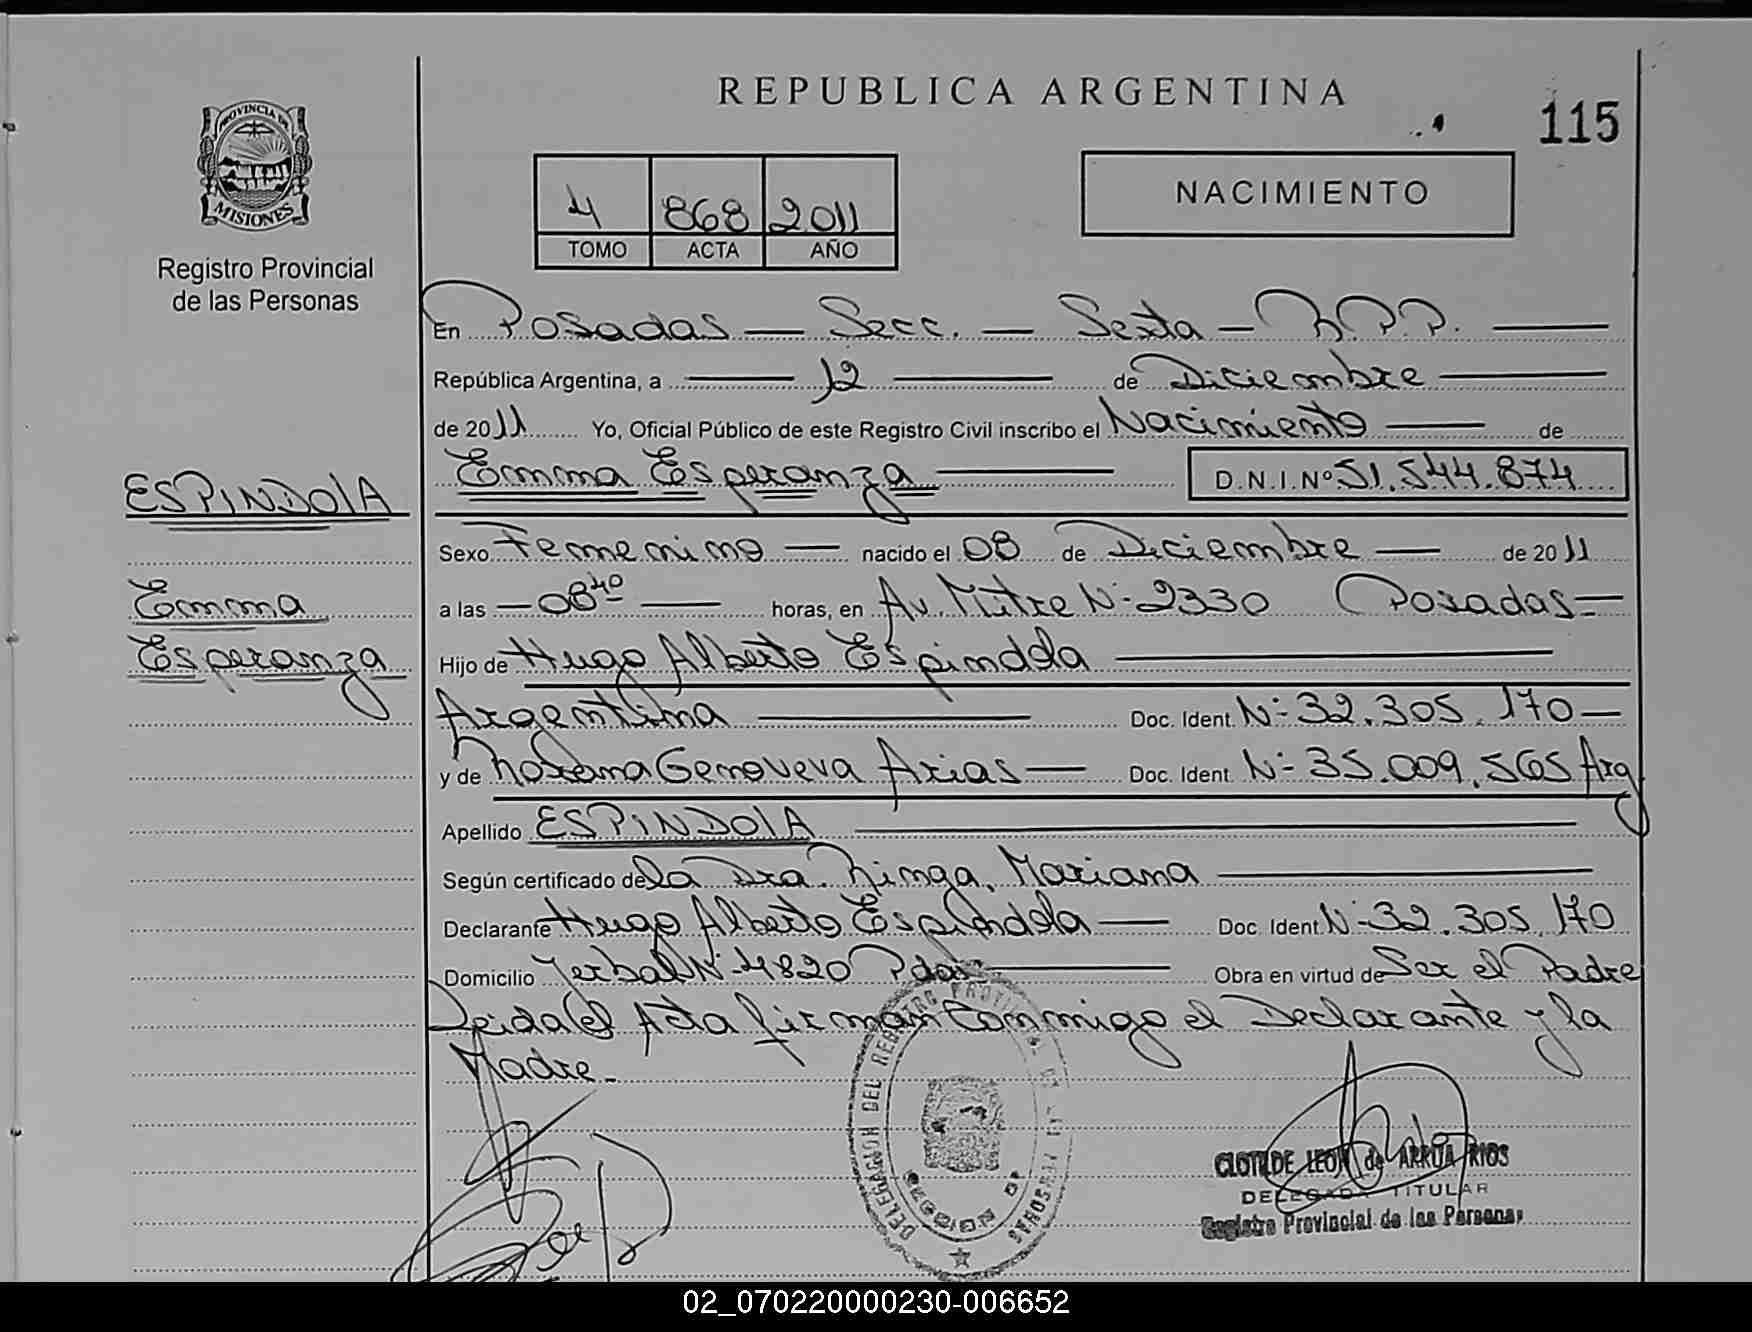 REPUBLICA ARGENTINA
115
PROVINCIA DE
MISIONES
Registro Provincial
de las Personas
4 868 2011
TOMO ACTA AÑO
NACIMIENTO
En Posadas — Secc. — Sexta — R.P.P.
República Argentina, a 12 de Diciembre
de 2011 Yo, Oficial Público de este Registro Civil inscribo el Nacimiento de
Emma Esperanza D.N.I. Nº 51.544.874
ESPINDOlA
Sexo Femenino nacido el 08 de Diciembre de 2011
Emma
a las 08 40 horas, en Av. Mitre Nº 2330 Posadas
Esperanza
Hijo de Hugo Alberto Espindola
Argentina Doc. Ident. Nº 32.305.170
y de Genoveva Arias Doc. Ident. Nº 35.009.565 Arg
Apellido ESPINDOlA
Según certificado de la Dra. Mariana
Declarante Hugo Alberto Espindola Doc. Ident. Nº 32.305.170
Domicilio Yerbal Nº 4820 Pdas Obra en virtud de Ser el Padre
Leida el Acta firman Conmigo el Declarante y la
Madre.
DELEGACION DEL REGISTRO PROVINCIAL DE LAS PERSONAS
CLOTILDE LEON de ARRUA RIOS
DELEGADA TITULAR
Registro Provincial de las Personas
02_070220000230-006652